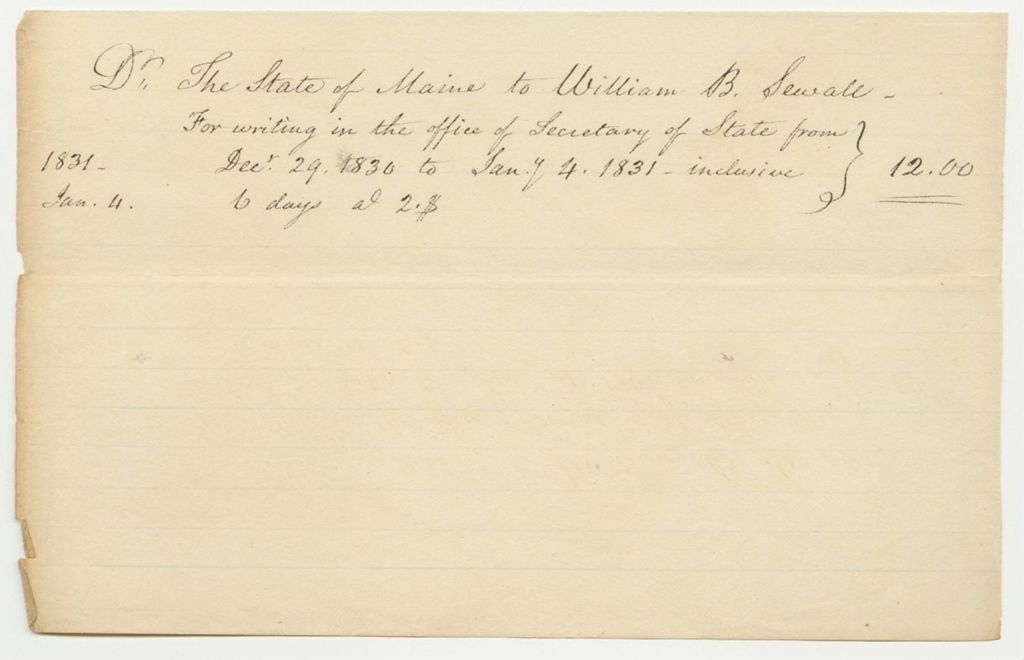 Dr. The State of Maine to William B. Sewall -
For writing in the office of Secretary of State from
1831 - Decr. 29. 1830 to Jan.y 4. 1831 - inclusive } 12.00
Jan. 4. 6 days at 2.$